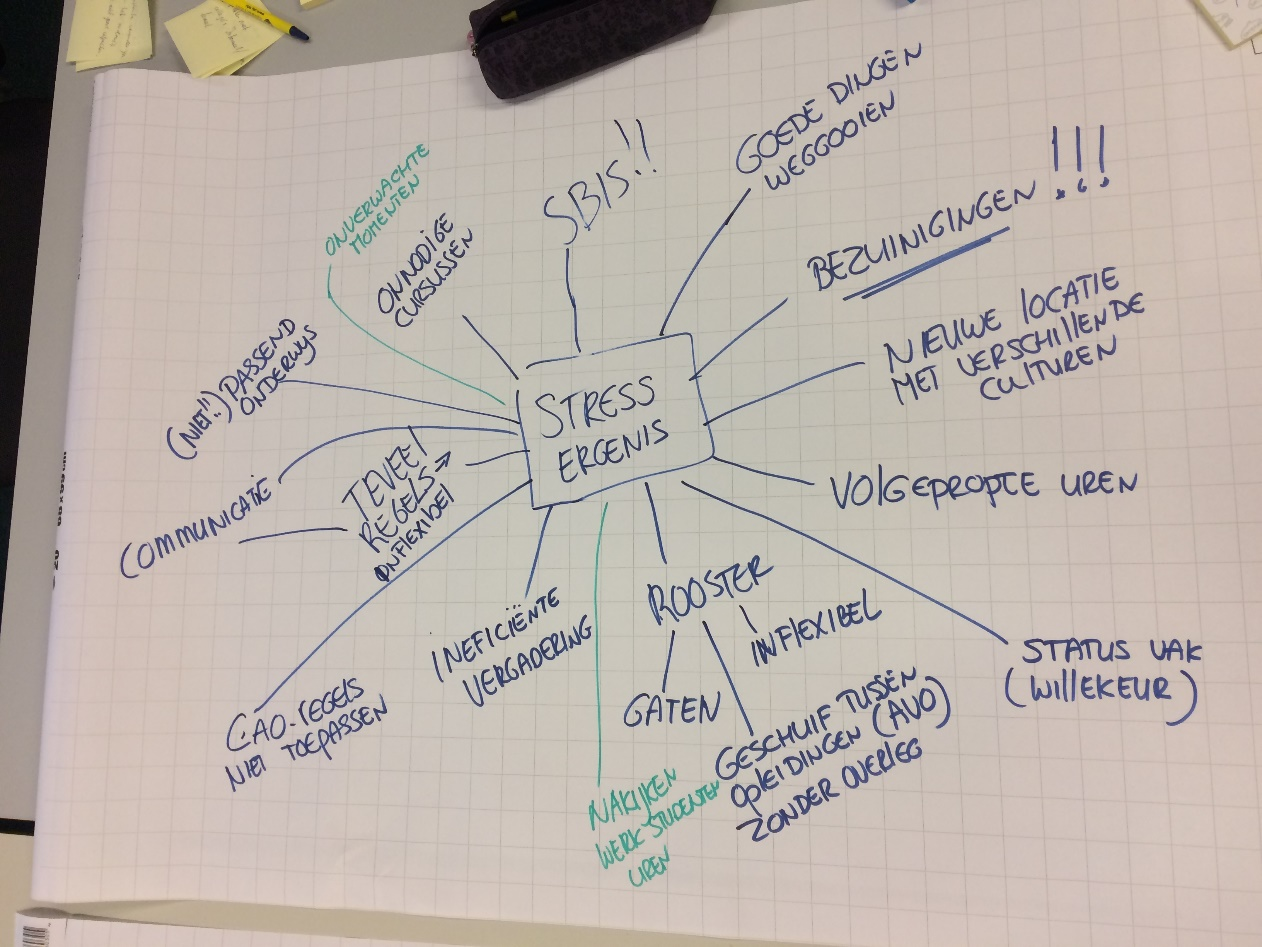 STRESS
ERGENIS
SBIS!!
GOEDE DINGEN
WEGGOOIEN
BEZUINIGINGEN !!!
NIEUWE LOCATIE
MET VERSCHILLENDE
CULTUREN
VOLGEPROPTE UREN
STATUS VAK
(WILLEKEUR)
ROOSTER
INFLEXIBEL
GESCHUIF TUSSEN
OPLEIDINGEN (AVO)
ZONDER OVERLEG
GATEN
NAKIJKEN
WERK STUDENTEN
UREN
INEFICIËNTE
VERGADERING
CAO-REGELS
NIET TOEPASSEN
TEVEEL
REGELS →
INFLEXIBEL
COMMUNICATIE
(NIET!!) PASSEND
ONDERWYS
ONVERWACHTE
MOMENTEN
ONNODIGE
CURSUSSEN